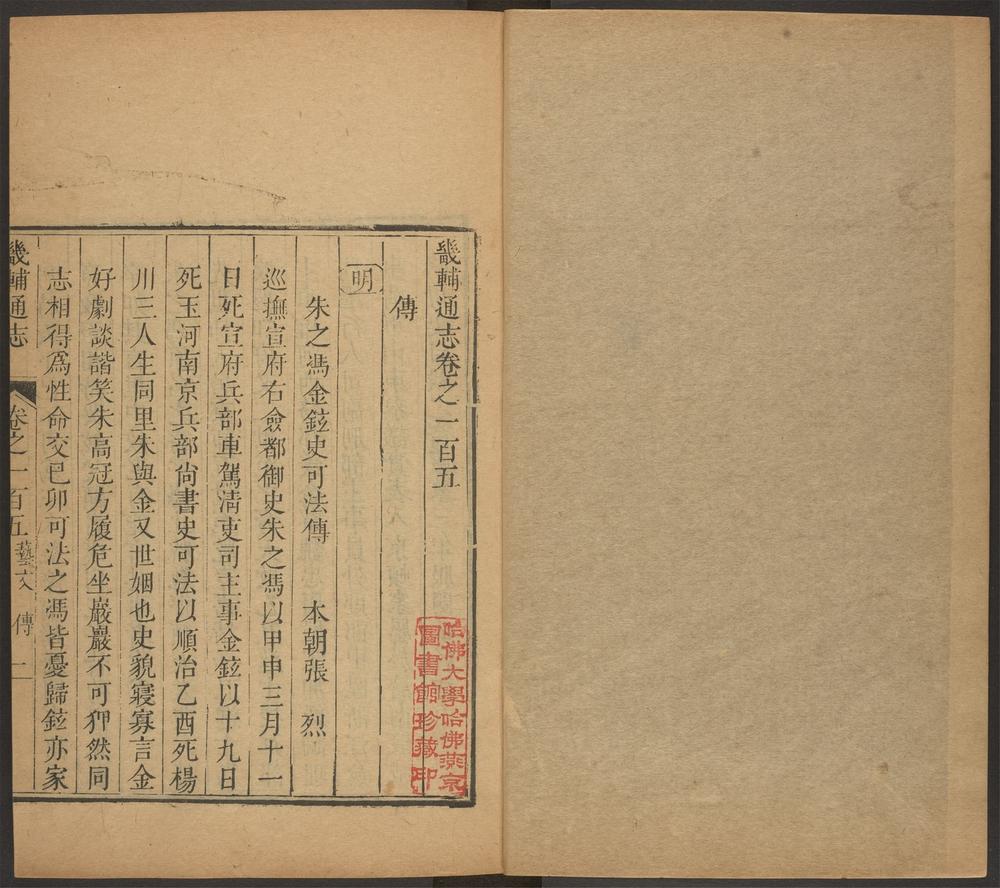 畿輔通志卷之一百五
傳
明
朱之馮金鉉史可法傳 本朝張 烈
巡撫宣府右僉都御史朱之馮以甲申三月十一
日死宣府兵部車駕清吏司主事金鉉以十九日
死玉河南京兵部尚書史可法以順治乙酉死楊
川三人生同里朱與金又世姻也史貌寢寡言金
好劇談諧笑朱高冠方履危坐巖巖不可狎然同
志相得爲性命交已卯可法之馮皆憂歸鉉亦家
畿輔通志 卷之一百五 藝文 傳 一
哈佛大學哈佛燕京
圖書館珍藏印